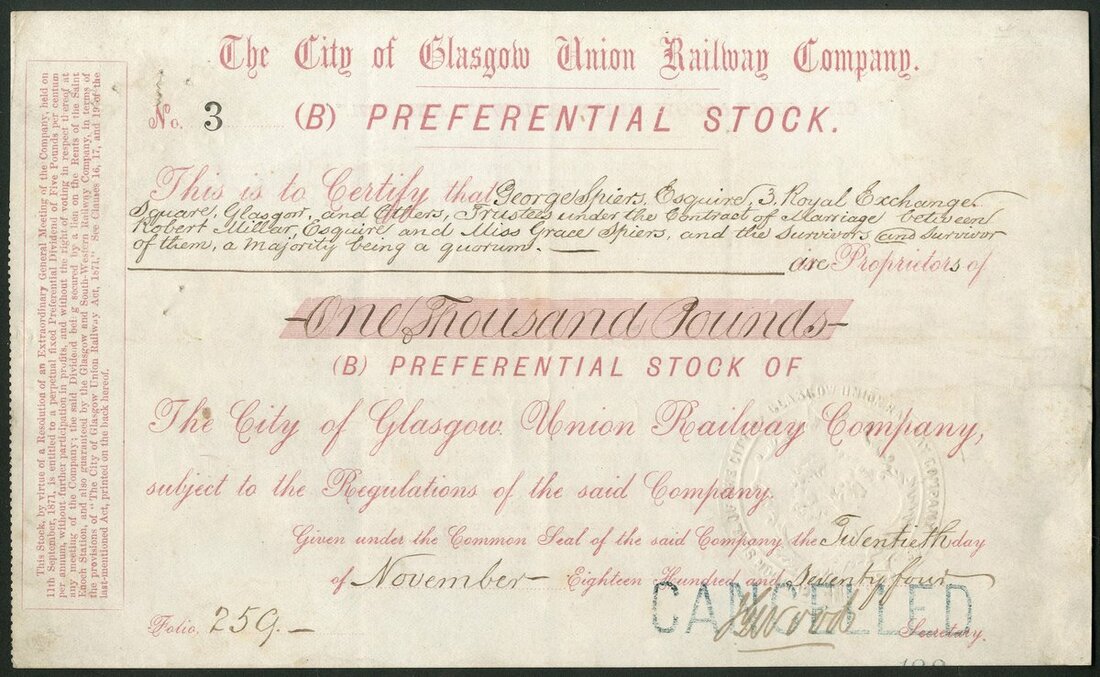 The City of Glasgow Union Railway Company.
No. 3 (B) PREFERENTIAL STOCK.
This is to Certify that George Spiers, Esquire, 3, Royal Exchange
Square, Glasgow, and Others, Trustees under the Contract of Marriage between
Robert Millar, Esquire and Miss Grace Spiers, and the Survivors and Survivor
of them, a Majority being a quorum. —
are Proprietors of
One Thousand Pounds
(B) PREFERENTIAL STOCK OF
The City of Glasgow Union Railway Company,
subject to the Regulations of the said Company.
Given under the Common Seal of the said Company the Twentieth day
of November Eighteen Hundred and Seventy four
CANCELLED
Folio. 259. — Secretary.
This Stock, by virtue of a Resolution of an Extraordinary General Meeting of the Company, held on
11th September, 1871, is entitled to a perpetual fixed Preferential Dividend of Five Pounds per centum
per annum, without further participation in profits, and without the right of voting in respect thereof at
any meeting of the Company; the said Dividend being secured by a lien on the Rents of the Saint
Enoch Station, and also guaranteed by the Glasgow and South-Western Railway Company, in terms of
the provisions of "The City of Glasgow Union Railway Act, 1871." See Clauses 16, 17, and 19 of the
last-mentioned Act, printed on the back hereof.